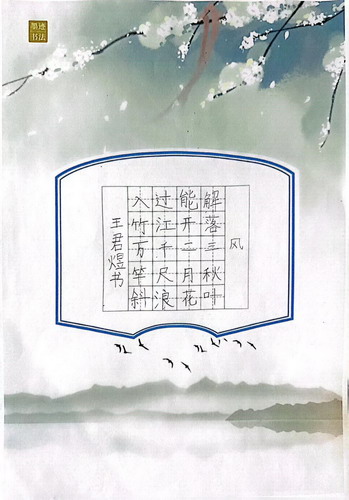 墨迹
书法
风
解落三秋叶
能开二月花
过江千尺浪
入竹万竿斜
王君煜书